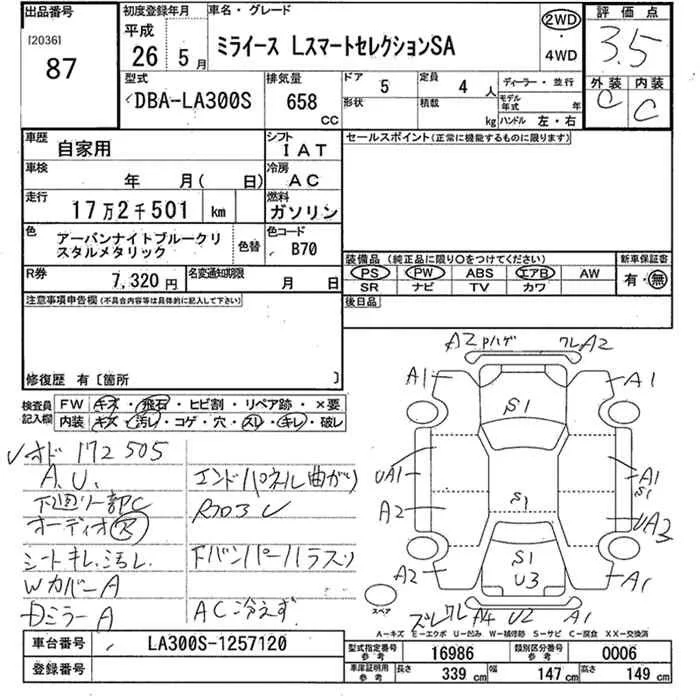 出品番号
[2036]
87
初度登録年月
平成
26 5月
車名・グレード
ミライース LスマートセレクションSA
2WD
・
4WD
評価点
3.5
外装 内装
C C
型式
DBA-LA300S
排気量
658
CC
ドア 5
形状
定員 4人
積載 kg
ディーラー・並行
モデル年式 年
ハンドル 左・右
車歴 自家用
シフト IAT
車検 年 月( 日)
冷房 AC
走行 17万2千501 km
燃料 ガソリン
色 アーバンナイトブルークリスタルメタリック
色替
色コード B70
R券 7,320円
名変通知期限 月 日
セールスポイント(正常に機能するものに限ります)
装備品(純正品に限り○をつけてください)
PS PW ABS エアB AW
SR ナビ TV カワ
新車保証書
有・無
後日品
注意事項申告欄(不具合内容等は具体的に記入して下さい)
修復歴 有〔箇所 〕
検査員記入欄
FW キズ・飛石・ヒビ割・リペア跡・×要
内装 キズ・汚レ・コゲ・穴・スレ・キレ・破レ
オド 172505
A.U.
下廻リ一部C
オーディオ欠
シートキレ、汚レ
WカバーA
DミラーA
エンドパネル曲がり
RフロアU
Fバンパーハラスリ
AC冷えず
A2 Pハゲ ワレ A2
A1 A1
S1
UA1 A1
S1
A2 S1 UA3
S1
A2 U3 A1
ズレワレ A4 U2 A1
スペア
A―キズ E―エクボ U―凹み W―補修跡 S―サビ C―腐食 XX―交換済
車台番号 LA300S-1257120
登録番号
型式指定番号 参考 16986
類別区分番号 参考 0006
車庫証明用 参考 長さ 339 cm 幅 147 cm 高さ 149 cm